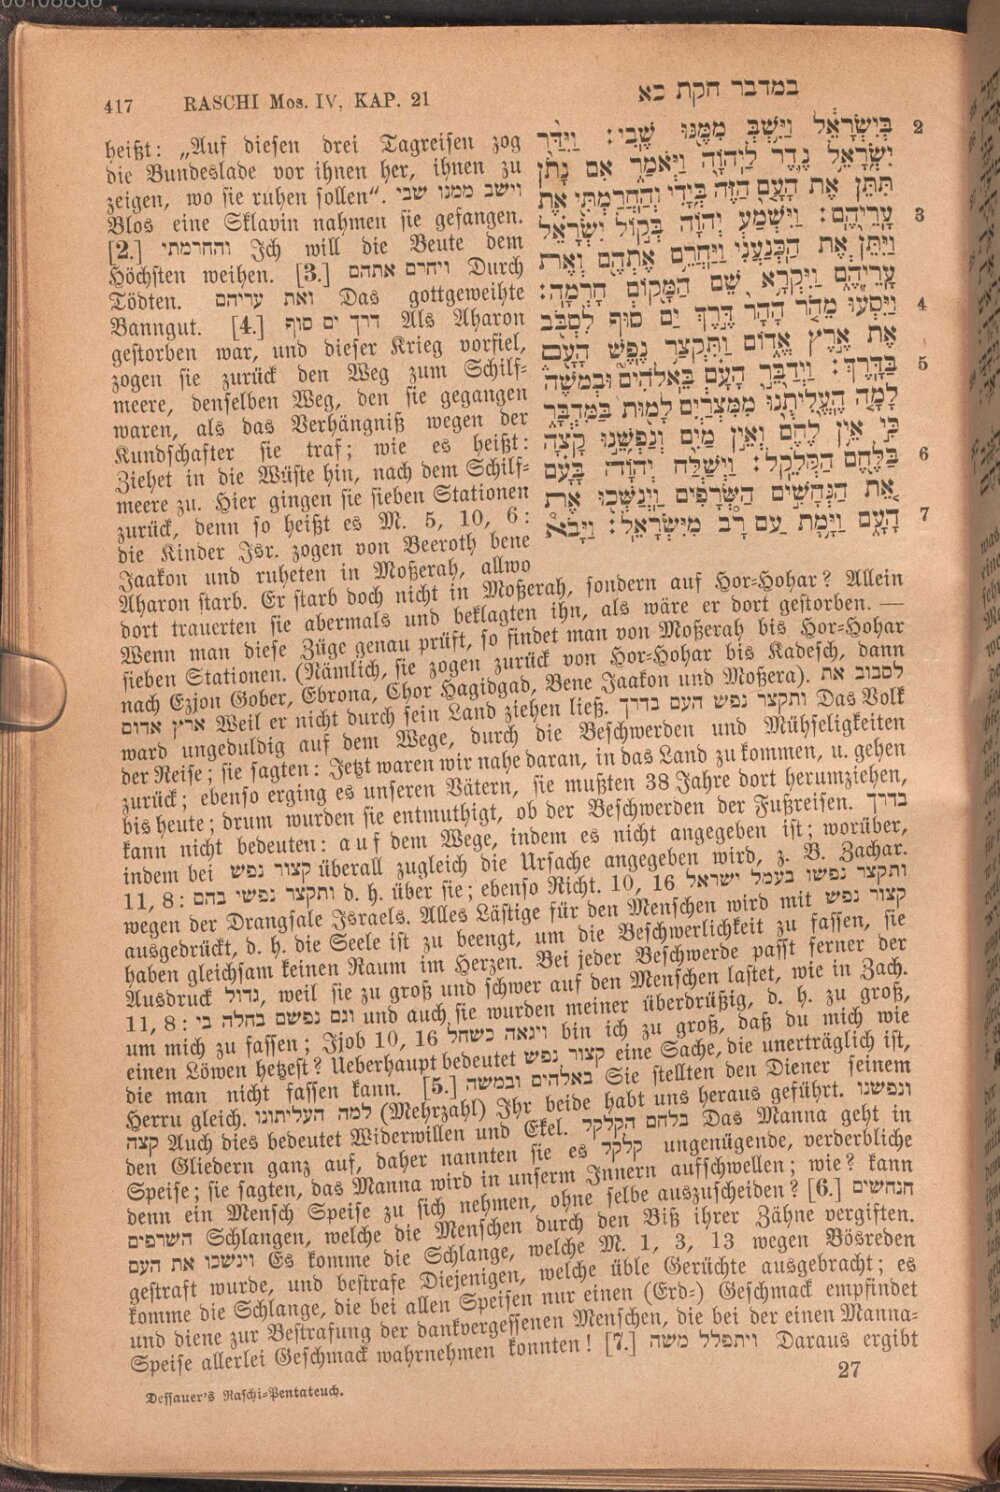 417 RASCHI Mos. IV, KAP. 21
במדבר חקת כא
heißt: „Auf diesen drei Tagreisen zog
die Bundeslade vor ihnen her, ihnen zu
zeigen, wo sie ruhen sollen“. וישב ממנו שבי
Blos eine Sklavin nahmen sie gefangen.
[2.] והחרמתי Ich will die Beute dem
Höchsten weihen. [3.] ויחרם אתהם Durch
Tödten. ואת עריהם Das gottgeweihte
Banngut. [4.] דרך ים סוף Als Aharon
gestorben war, und dieser Krieg vorfiel,
zogen sie zurück den Weg zum Schilf-
meere, denselben Weg, den sie gegangen
waren, als das Verhängniß wegen der
Kundschafter sie traf; wie es heißt:
Ziehet in die Wüste hin, nach dem Schilf-
meere zu. Hier gingen sie sieben Stationen
zurück, denn so heißt es M. 5, 10, 6:
die Kinder Isr. zogen von Beeroth bene
Jaakon und ruheten in Moßerah, allwo
בְּיִשְׂרָאֵל וַיִּשְׁבְּ מִמֶּנּוּ שֶׁבִי: וַיִּדַּר 2
יִשְׂרָאֵל נֶדֶר לַיהוָה וַיֹּאמַר אִם נָתֹן
תִּתֵּן אֶת הָעָם הַזֶּה בְּיָדִי וְהַחֲרַמְתִּי אֶת
עָרֵיהֶם: וַיִּשְׁמַע יְהוָה בְּקוֹל יִשְׂרָאֵל 3
וַיִּתֵּן אֶת הַכְּנַעֲנִי וַיַּחֲרֵם אֶתְהֶם וְאֶת
עָרֵיהֶם וַיִּקְרָא שֵׁם הַמָּקוֹם חָרְמָה:
וַיִּסְעוּ מֵהֹר הָהָר דֶּרֶךְ יַם סוּף לִסְבֹּב 4
אֶת אֶרֶץ אֱדוֹם וַתִּקְצַר נֶפֶשׁ הָעָם
בַּדָּרֶךְ: וַיְדַבֵּר הָעָם בֵּאלֹהִים וּבְמֹשֶׁה 5
לָמָה הֶעֱלִיתֻנוּ מִמִּצְרַיִם לָמוּת בַּמִּדְבָּר
כִּי אֵין לֶחֶם וְאֵין מַיִם וְנַפְשֵׁנוּ קָצָה
בַּלֶּחֶם הַקְּלֹקֵל: וַיְשַׁלַּח יְהוָה בָּעָם 6
אֵת הַנְּחָשִׁים הַשְּׂרָפִים וַיְנַשְּׁכוּ אֶת
הָעָם וַיָּמָת עַם רָב מִיִּשְׂרָאֵל: וַיָּבֹא 7
Aharon starb. Er starb doch nicht in Moßerah, sondern auf Hor-Hohar? Allein
dort trauerten sie abermals und beklagten ihn, als wäre er dort gestorben. —
Wenn man diese Züge genau prüft, so findet man von Moßerah bis Hor-Hohar
sieben Stationen. (Nämlich, sie zogen zurück von Hor-Hohar bis Kadesch, dann
nach Ezjon Gober, Ebrona, Chor Hagidgad, Bene Jaakon und Moßera). לסבוב את
ארץ אדום Weil er nicht durch sein Land ziehen ließ. ותקצר נפש העם בדרך Das Volk
ward ungeduldig auf dem Wege, durch die Beschwerden und Mühseligkeiten
der Reise; sie sagten: Jetzt waren wir nahe daran, in das Land zu kommen, u. gehen
zurück; ebenso erging es unseren Vätern, sie mußten 38 Jahre dort herumziehen,
bis heute; drum wurden sie entmuthigt, ob der Beschwerden der Fußreisen. בדרך
kann nicht bedeuten: auf dem Wege, indem es nicht angegeben ist; worüber,
indem bei קצור נפש überall zugleich die Ursache angegeben wird, z. B. Zachar.
11, 8: ותקצר נפשי בהם d. h. über sie; ebenso Richt. 10, 16 ותקצר נפשו בעמל ישראל
wegen der Drangsale Israels. Alles Lästige für den Menschen wird mit קצור נפש
ausgedrückt, d. h. die Seele ist zu beengt, um die Beschwerlichkeit zu fassen, sie
haben gleichsam keinen Raum im Herzen. Bei jeder Beschwerde paßt ferner der
Ausdruck גדול, weil sie zu groß und schwer auf den Menschen lastet, wie in Zach.
11, 8: וגם נפשם בחלה בי und auch sie wurden meiner überdrüßig, d. h. zu groß,
um mich zu fassen; Ijob 10, 16 ויגאה כשחל bin ich zu groß, daß du mich wie
einen Löwen hetzest? Ueberhaupt bedeutet קצור נפש eine Sache, die unerträglich ist,
die man nicht fassen kann. [5.] באלהים ובמשה Sie stellten den Diener seinem
Herru gleich. למה העליתונו (Mehrzahl) Ihr beide habt uns heraus geführt. ונפשנו
קצה Auch dies bedeutet Widerwillen und Ekel. בלחם הקלקל Das Manna geht in
den Gliedern ganz auf, daher nannten sie es קלקל ungenügende, verderbliche
Speise; sie sagten, das Manna wird in unserm Innern aufschwellen; wie? kann
denn ein Mensch Speise zu sich nehmen, ohne selbe auszuscheiden? [6.] הנחשים
השרפים Schlangen, welche die Menschen durch den Biß ihrer Zähne vergiften.
וינשכו את העם Es komme die Schlange, welche M. 1, 3, 13 wegen Bösreden
gestraft wurde, und bestrafe Diejenigen, welche üble Gerüchte ausgebracht; es
komme die Schlange, die bei allen Speisen nur einen (Erd-) Geschmack empfindet
und diene zur Bestrafung der dankvergessenen Menschen, die bei der einen Manna-
Speise allerlei Geschmack wahrnehmen konnten! [7.] ויתפלל משה Daraus ergibt
27
Dessauer's Raschi-Pentateuch.